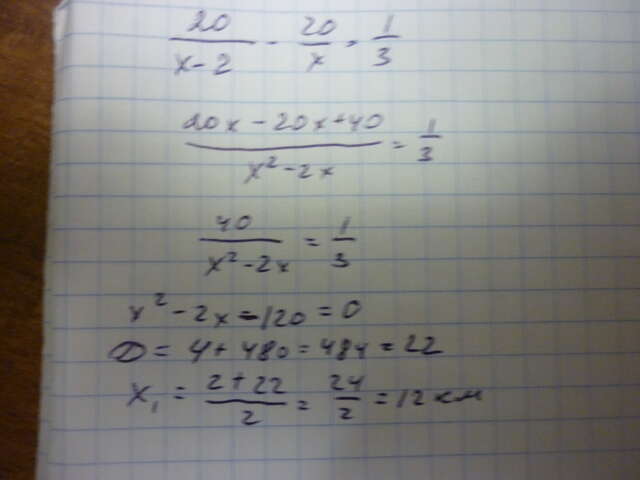 20/(x-2) - 20/x = 1/3
(20x - 20x + 40)/(x² - 2x) = 1/3
40/(x² - 2x) = 1/3
x² - 2x - 120 = 0
D = 4 + 480 = 484 = 22
x₁ = (2 + 22)/2 = 24/2 = 12 км